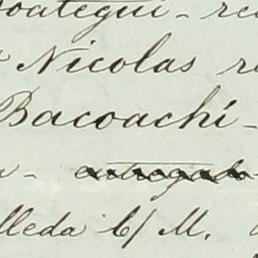 oategui - re
Nicolas r
Bacoachí -
- entregado
lleda b/ M.